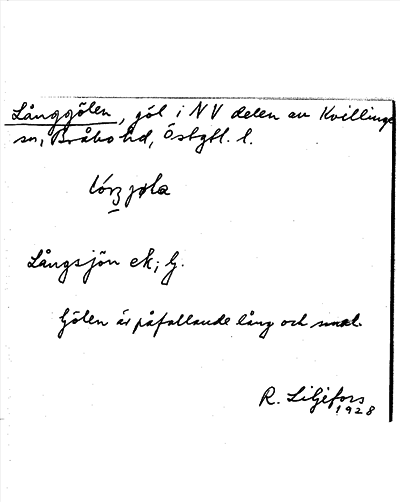 Långgölen, göl i NV delen av Kvillinge
sn, Bråbo hd, Östgtl. l.
Långsjön ek; lj.
Gölen är påfallande lång och smal.
R. Liljefors
1928